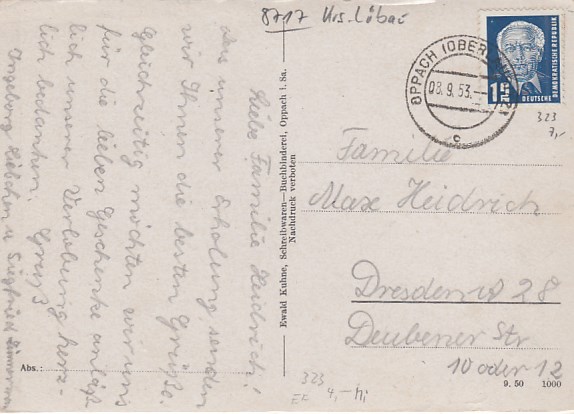 8717 Krs. Löbau
OPPACH (OBERL
08.9.53.
c
12
DEUTSCHE
DEMOKRATISCHE REPUBLIK
323
7,-
Liebe Familie Heidrich!
Aus unserer Erholung senden
wir Ihnen die besten Grüße.
Gleichzeitig möchten wir uns
für die lieben Geschenke anläßl
lich unserer Verlobung herz-
lich bedanken. Gruß
Ingeborg u Siegfried
Ewald Kuhne, Schreibwaren—Buchbinderei, Oppach i. Sa.
Nachdruck verboten
Familie
Max Heidrich
Dresden A 28
Deubener Str
10 oder 12
Abs.:
323
EF 4,-
9. 50 1000